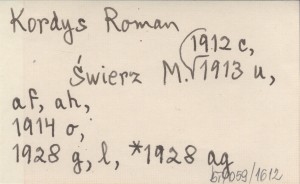 Kordys Roman
1912 c,
Świerz M. 1913 u,
af, ah,
1914 o,
1928 g, l, *1928 ag
59059/1612